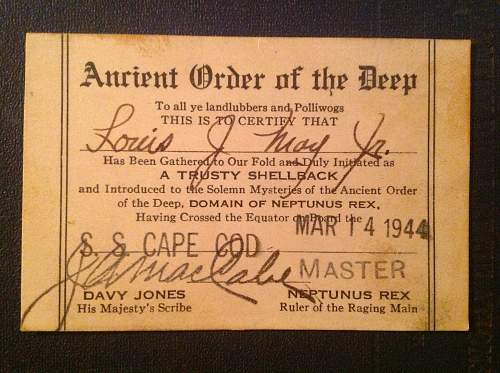 Ancient Order of the Deep
To all ye landlubbers and Polliwogs
THIS IS TO CERTIFY THAT
Louis J May Jr.
Has Been Gathered to Our Fold and Duly Initiated as
A TRUSTY SHELLBACK
and Introduced to the Solemn Mysteries of the Ancient Order
of the Deep, DOMAIN OF NEPTUNUS REX,
Having Crossed the Equator on Board the
MAR 14 1944
S. S. CAPE COD
J A MacCabe MASTER
DAVY JONES NEPTUNUS REX
His Majesty's Scribe Ruler of the Raging Main